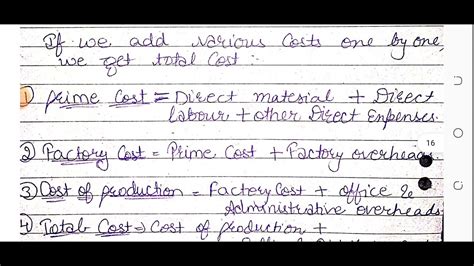 If we add various costs one by one,
we get total cost :-
1) Prime Cost = Direct material + Direct
labour + other Direct Expenses.
16
2) Factory Cost = Prime Cost + Factory overheads
3) Cost of production = Factory Cost + office &
Administrative overheads
4) Total Cost => Cost of production +